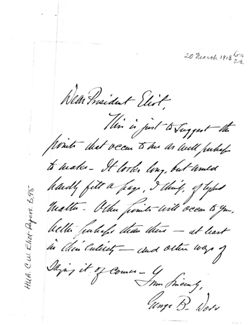 20 March 1913
Dear President Eliot,
This is just to suggest the
points that occur to me as well perhaps
to make. It looks long, but would
hardly fill a page, I think, of typed
matter. Other points will occur to you,
better perhaps than these — at least
in their entirety — and other ways of
saying it of course.
Yours Sincerely,
George B.
HUA C.W. Eliot Papers